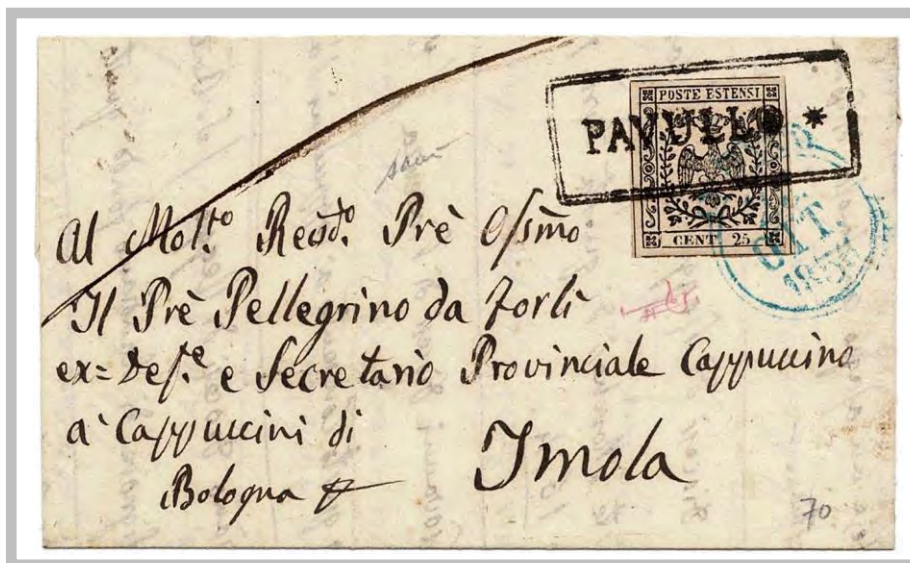 POSTE ESTENSI
PAVULLO *
CENT. 25
OTT.
Al Molto. Revd.o Prè Ossmo
Il Prè Pellegrino da Forlì
ex= Def.e e Secretario Provinciale Cappuccino
a' Cappuccini di
Bologna
Imola
70